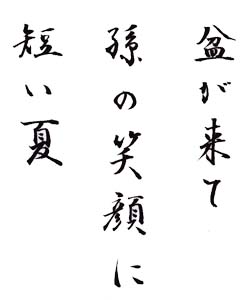 盆が来て
孫の笑顔に
短い夏